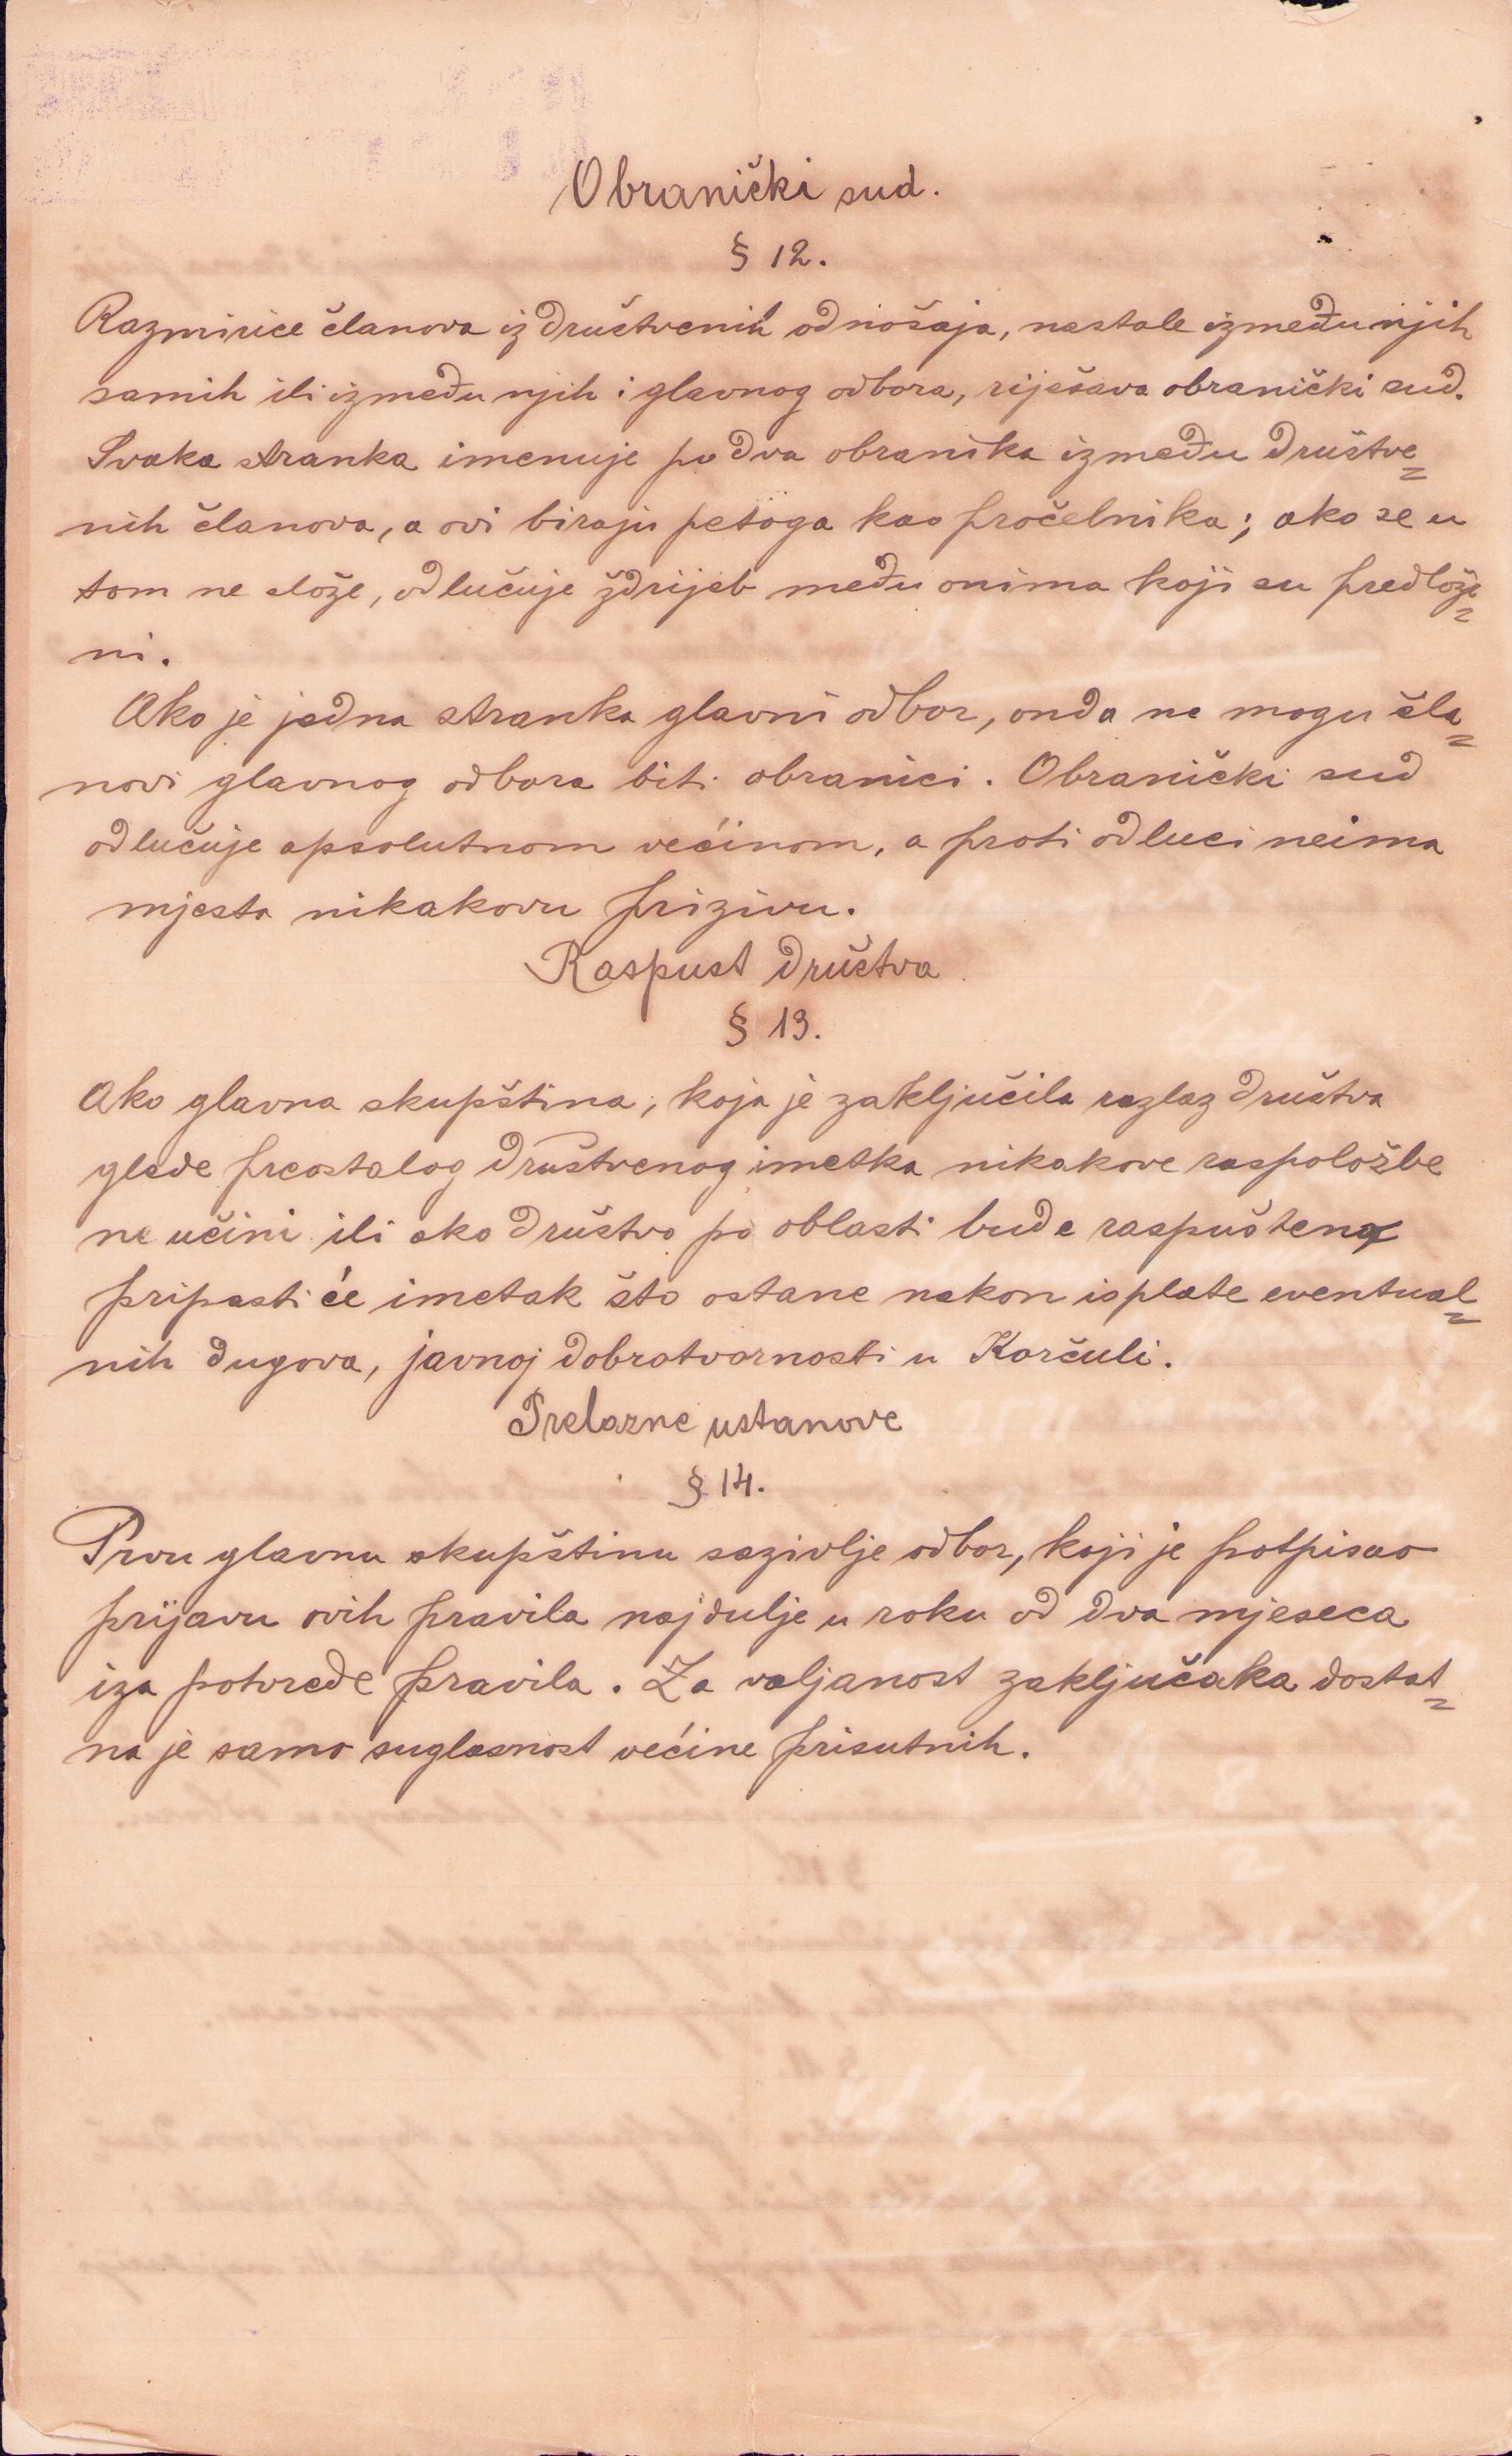 Obranički sud.
§ 12.
Razmirice članova iz društvenih odnošaja, nastale između njih
samih ili između njih i glavnog odbora, riješava obranički sud.
Svaka stranka imenuje po dva obranika između društve=
nih članova, a ovi biraju petoga kao pročelnika; ako se u
tom ne slože, odlučuje ždrijeb među onima koji su predlože=
ni.
Ako je jedna stranka glavni odbor, onda ne mogu čla=
novi glavnog odbora biti obranici. Obranički sud
odlučuje apsolutnom većinom, a proti odluci neima
mjesta nikakovu prizivu.
Raspust društva
§ 13.
Ako glavna skupština, koja je zaključila razlaz društva
glede preostalog društvenog imetka nikakove raspoložbe
ne učini ili ako društvo po oblasti bude raspušteno
pripasti će imetak što ostane nakon isplate eventual=
nih dugova, javnoj dobrotvornosti u Korčuli.
Prelazne ustanove
§ 14.
Prvu glavnu skupštinu sazivlje odbor, koji je potpisao
prijavu ovih pravila najdulje u roku od dva mjeseca
iza potvrede pravila. Za valjanost zaključaka dostat=
na je samo suglasnost većine prisutnih.